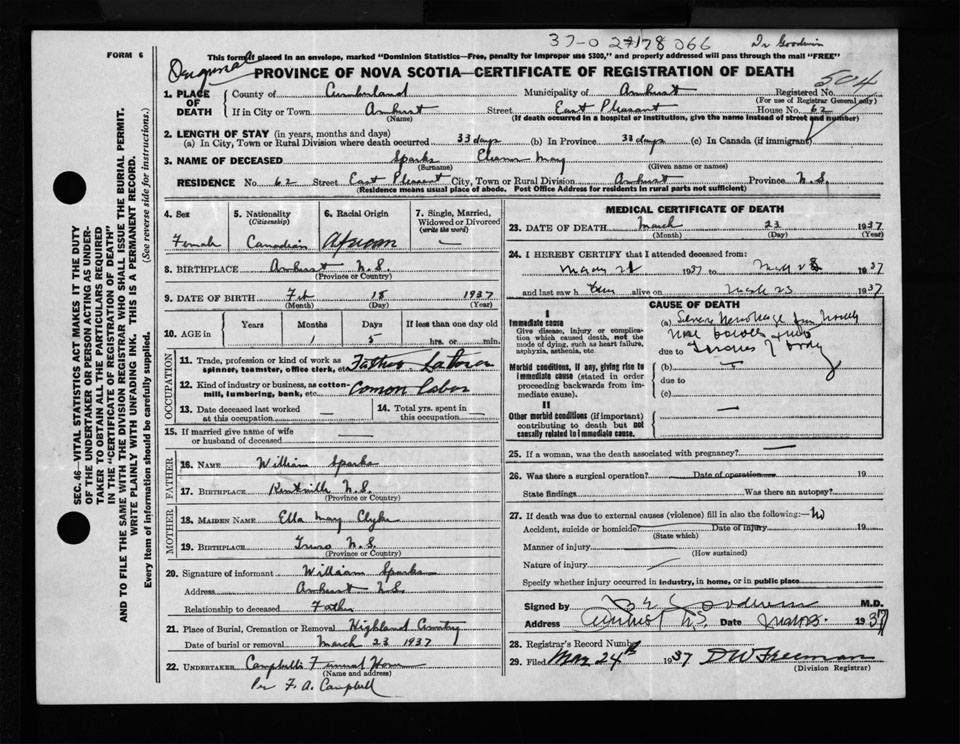 37-0 27178 066 Dr Goodwin
FORM 6
This form if placed in an envelope, marked "Dominion Statistics—Free, penalty for improper use $300," and properly addressed will pass through the mail "FREE"
PROVINCE OF NOVA SCOTIA—CERTIFICATE OF REGISTRATION OF DEATH
504
1. PLACE OF DEATH County of Cumberland Municipality of Amherst Registered No.
(For use of Registrar General only)
If in City or Town Amherst Street East Pleasant House No. 62
(Name) (If death occurred in a hospital or institution, give the name instead of street and number)
2. LENGTH OF STAY (in years, months and days)
(a) In City, Town or Rural Division where death occurred 33 days (b) In Province 33 days (c) In Canada (if immigrant)
3. NAME OF DECEASED Sparks May
(Surname) (Given name or names)
RESIDENCE No. 62 Street East Pleasant City, Town or Rural Division Amherst Province N.S.
(Residence means usual place of abode. Post Office Address for residents in rural parts not sufficient)
SEC. 46—VITAL STATISTICS ACT MAKES IT THE DUTY
OF THE UNDERTAKER OR PERSON ACTING AS UNDER-
TAKER TO OBTAIN ALL THE PARTICULARS REQUIRED
IN THE "CERTIFICATE OF REGISTRATION OF DEATH"
AND TO FILE THE SAME WITH THE DIVISION REGISTRAR WHO SHALL ISSUE THE BURIAL PERMIT.
WRITE PLAINLY WITH UNFADING INK. THIS IS A PERMANENT RECORD.
Every item of information should be carefully supplied. (See reverse side for instructions.)
4. Sex Female
5. Nationality (Citizenship) Canadian
6. Racial Origin African
7. Single, Married, Widowed or Divorced (write the word) —
8. BIRTHPLACE Amherst N.S.
(Province or Country)
9. DATE OF BIRTH Feb 18 1937
(Month) (Day) (Year)
10. AGE in Years Months Days If less than one day old
1 5 hrs. or min.
OCCUPATION
11. Trade, profession or kind of work as spinner, teamster, office clerk, etc. Father Laborer
12. Kind of industry or business, as cotton-mill, lumbering, bank, etc. Common Labor
13. Date deceased last worked at this occupation —
14. Total yrs. spent in this occupation —
15. If married give name of wife or husband of deceased —
FATHER
16. NAME William Sparks
17. BIRTHPLACE Kentville N.S.
(Province or Country)
MOTHER
18. MAIDEN NAME Ella May Clyke
19. BIRTHPLACE Truro N.S.
(Province or Country)
20. Signature of informant William Sparks
Address Amherst N.S.
Relationship to deceased Father
21. Place of Burial, Cremation or Removal Highland Cemetery
Date of burial or removal March 23 1937
22. UNDERTAKER Campbells Funeral Home
(Name and address)
Per F. A. Campbell
MEDICAL CERTIFICATE OF DEATH
23. DATE OF DEATH March 23 1937
(Month) (Day) (Year)
24. I HEREBY CERTIFY that I attended deceased from:
1937 to 1937
and last saw h alive on 23 1937
CAUSE OF DEATH
I
Immediate cause
Give disease, injury or complication which caused death, not the mode of dying, such as heart failure, asphyxia, asthenia, etc.
(a) Severe
due to
Morbid conditions, if any, giving rise to immediate cause (stated in order proceeding backwards from immediate cause).
(b)
due to
(c)
II
Other morbid conditions (if important) contributing to death but not causally related to immediate cause.
25. If a woman, was the death associated with pregnancy? —
26. Was there a surgical operation? Date of operation 19
State findings Was there an autopsy?
27. If death was due to external causes (violence) fill in also the following:— No
Accident, suicide or homicide? Date of injury 19
(State which)
Manner of injury
(How sustained)
Nature of injury
Specify whether injury occurred in industry, in home, or in public place
Signed by Goodwin M.D.
Address Amherst N.S. Date 1937
28. Registrar's Record Number
29. Filed Mar 24th 1937 D W Freeman
(Division Registrar)